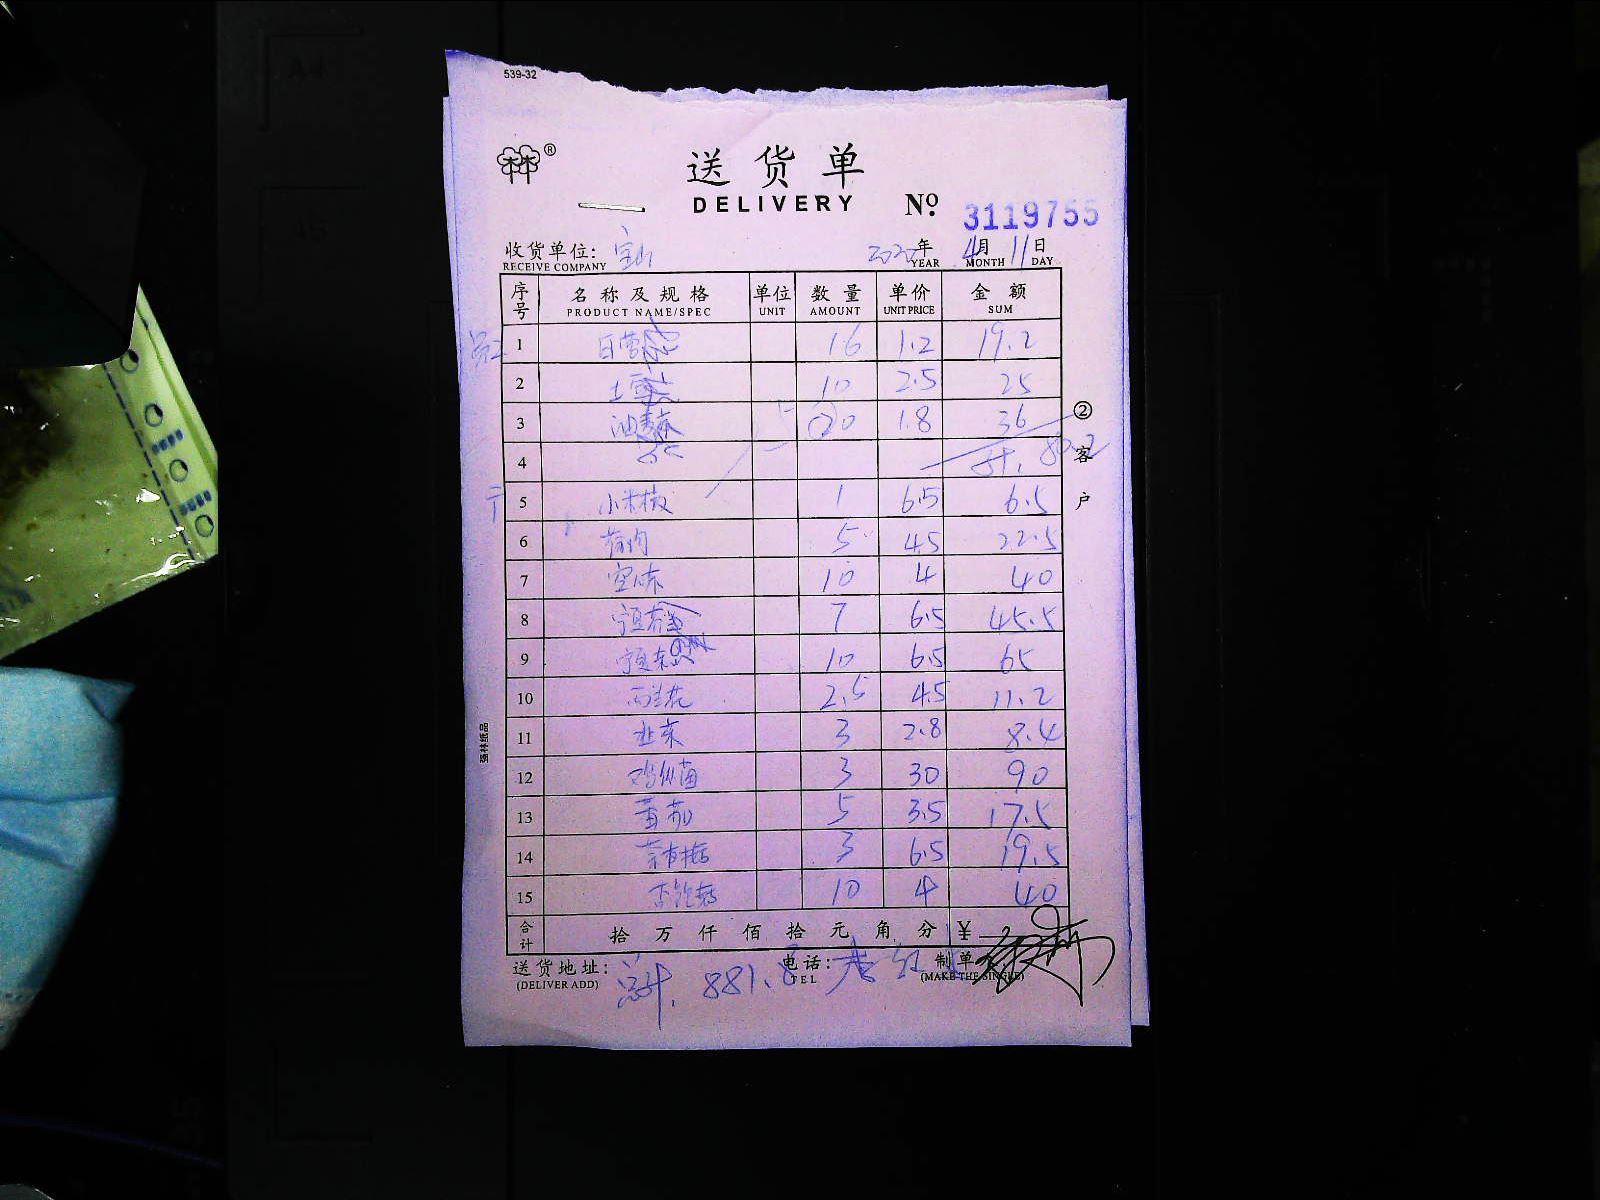 539-32
林®
送货单
DELIVERY No. 3119755
收货单位: 宝山 2020年 4月 11日
RECEIVE COMPANY YEAR MONTH DAY
序号 名称及规格 单位 数量 单价 金额
PRODUCT NAME/SPEC UNIT AMOUNT UNIT PRICE SUM
1 16 1.2 19.2
2 10 2.5 25
3 油麦菜 20 1.8 36
4 计. 80.2
5 小米椒 1 6.5 6.5
6 5 4.5 22.5
7 10 4 40
8 7 6.5 45.5
9 10 6.5 65
10 西兰花 2.5 4.5 11.2
11 韭菜 3 2.8 8.4
12 鸡纵菌 3 30 90
13 番茄 5 3.5 17.5
14 3 6.5 19.5
15 10 4 40
合计 拾 万 仟 佰 拾 元 角 分 ¥
送货地址: 电话: 制单
(DELIVER ADD) TEL (MAKE THE SINGLE)
总计. 881.8
②客户
强林纸品